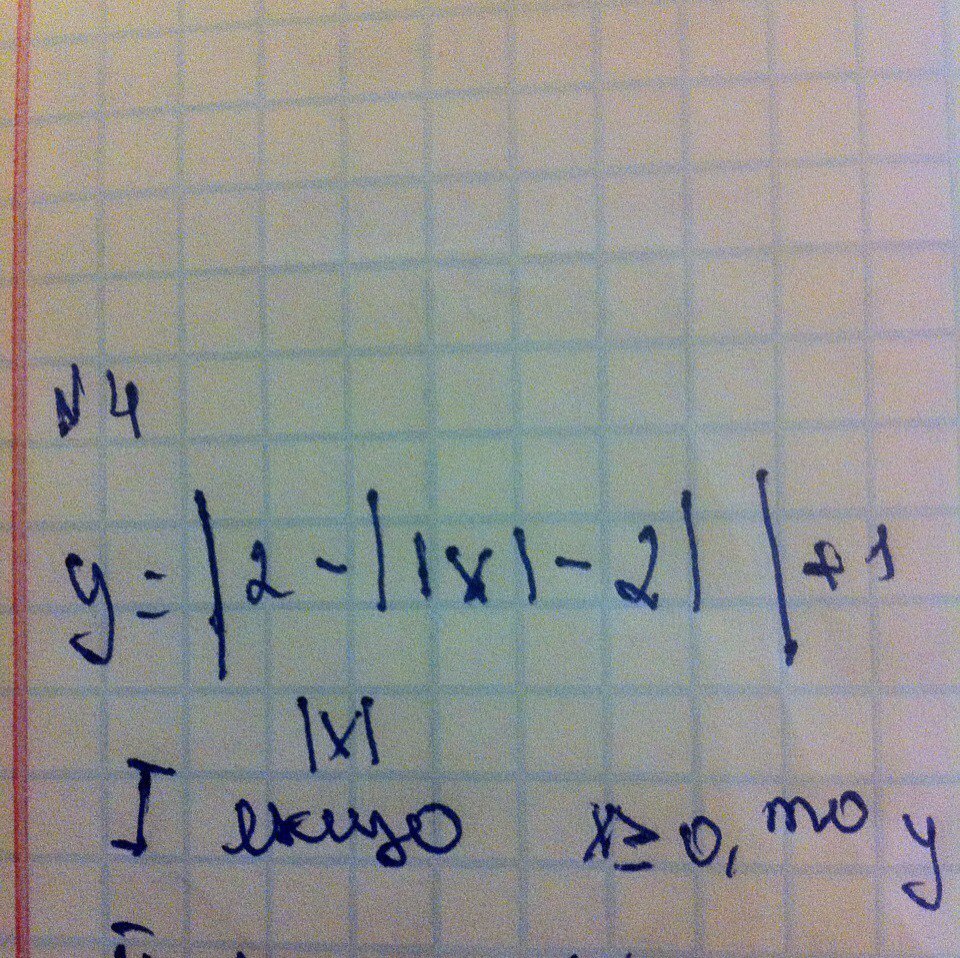 №4
y = |2 - ||x| - 2|| + 1
|x|
I якщо x ≥ 0, то y